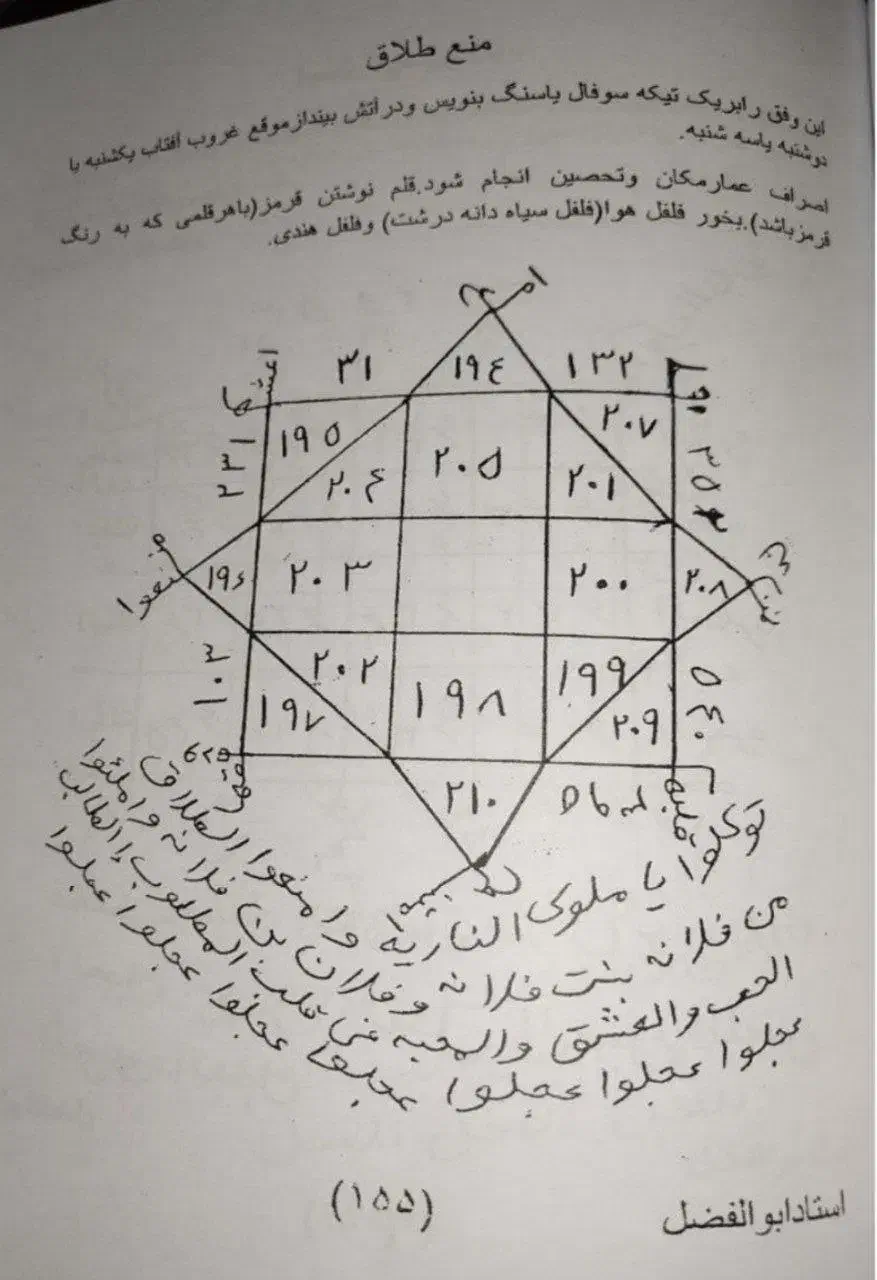 منع طلاق
این وفق رابریک تیکه سوفال یاسنگ بنویس ودرآتش بیندازموقع غروب آفتاب یکشنبه یا
دوشنبه یاسه شنبه.
اصراف عمارمکان وتحصین انجام شود.قلم نوشتن قرمز(باهرقلمی که به رنگ
قرمزباشد).بخور فلفل هوا(فلفل سیاه دانه درشت) وفلفل هندی.
۳۱ ۱۹۴ ۱۳۲
۲۳۱ ۱۹۵ ۲۰۴ ۲۰۵ ۲۰۱ ۲۰۷
۱۹۶ ۲۰۳ ۲۰۰ ۲۰۸
منعوا
۱۰۳ ۱۹۷ ۲۰۲ ۱۹۸ ۱۹۹ ۲۰۹
۲۱۰
توکلوا یا ملوک الناریه وا منعوا الطلاق
من فلانه بنت فلانه وفلان بن فلانه واملئوا
الحب والعشق والمحبه فی قلب المطلوب إ الطالب
عجلوا عجلوا عجلوا عجلوا عجلوا عجلوا عجلوا
(۱۵۵)
استادابوالفضل